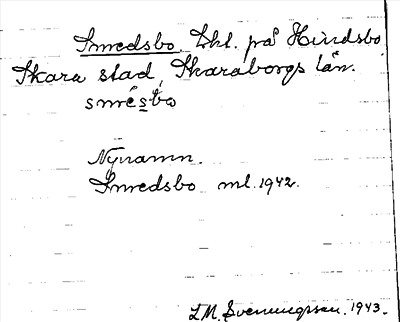 Smedsbo. Lht. på Hindsbo,
Skara stad, Skaraborgs län.
smésbo
Nynamn.
Smedsbo ml. 1942.
L.M. Svenungsson. 1943.